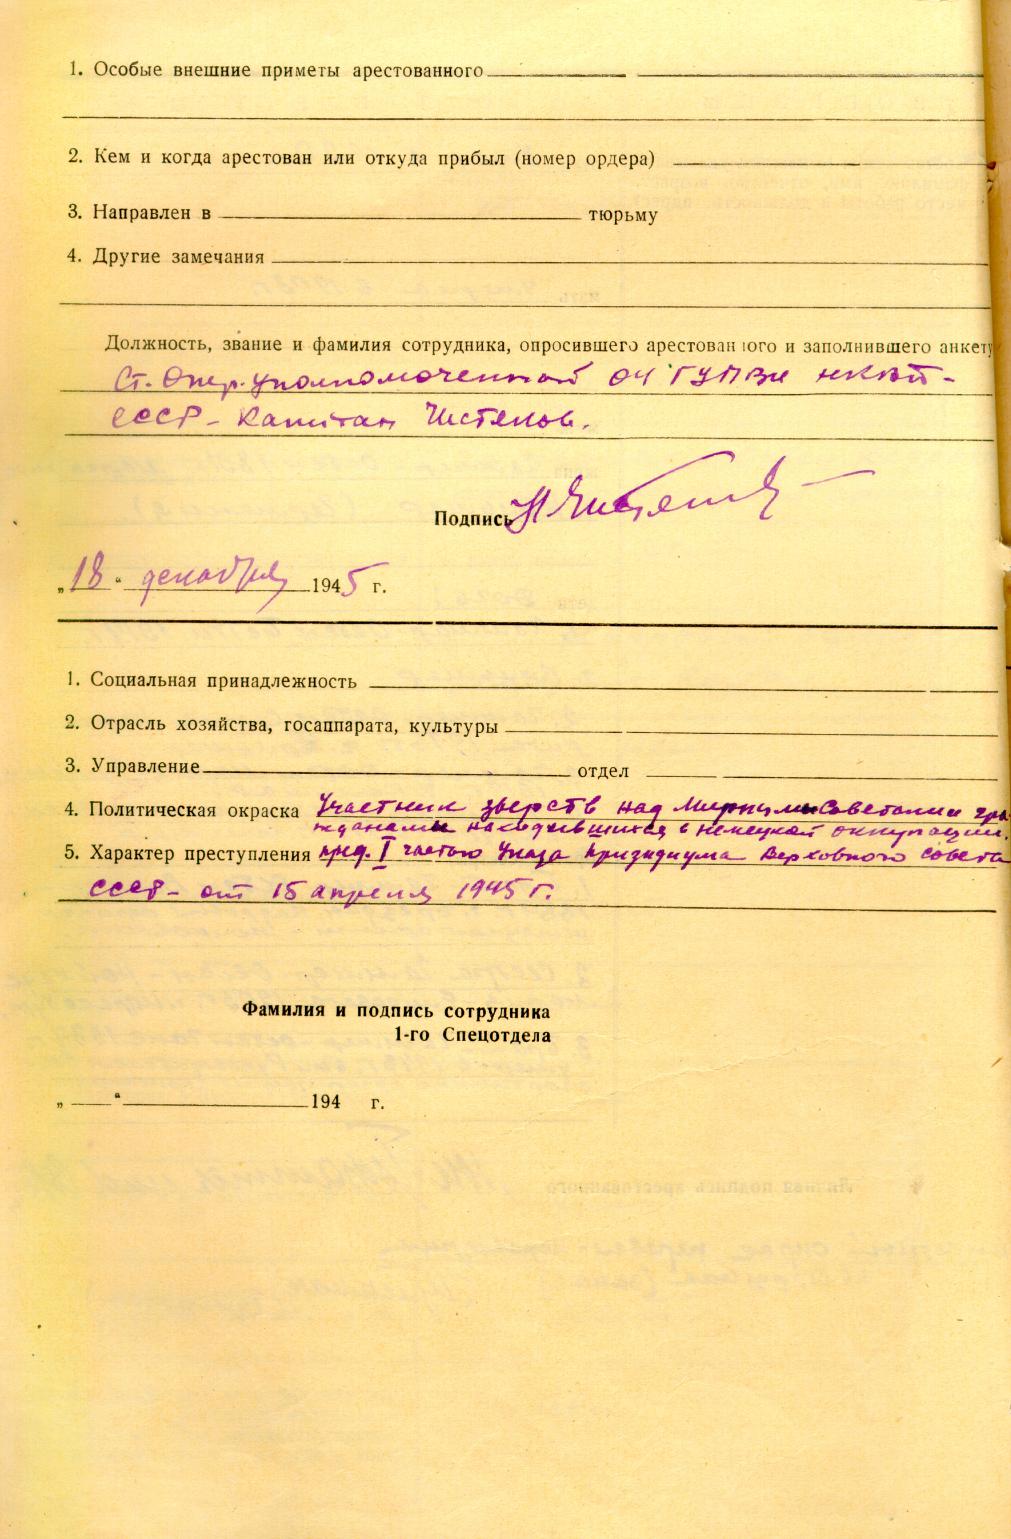 1. Особые внешние приметы арестованного
2. Кем и когда арестован или откуда прибыл (номер ордера)
3. Направлен в тюрьму
4. Другие замечания
Должность, звание и фамилия сотрудника, опросившего арестованного и заполнившего анкету
Ст. Опер. уполномоченный ОЧ ГУПВИ НКВД-
СССР - Капитан Чистяков.
Подпись
„18“ декабря 1945 г.
1. Социальная принадлежность
2. Отрасль хозяйства, госаппарата, культуры
3. Управление отдел
4. Политическая окраска Участник зверств над Мирными Советскими гра-
жданами находившимися в немецкой оккупации.
5. Характер преступления пред. I частью Указа Президиума Верховного Совета
СССР - от 15 апреля 1945 г.
Фамилия и подпись сотрудника
1-го Спецотдела
„ “ 194 г.